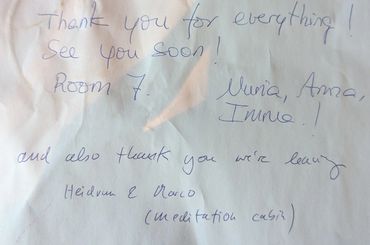 Thank you for everything!
See you soon!
Room 7. Nuria, Anna,
Imma!
and also thank you we're leaving
Heidrun & Marco
(meditation cabin)